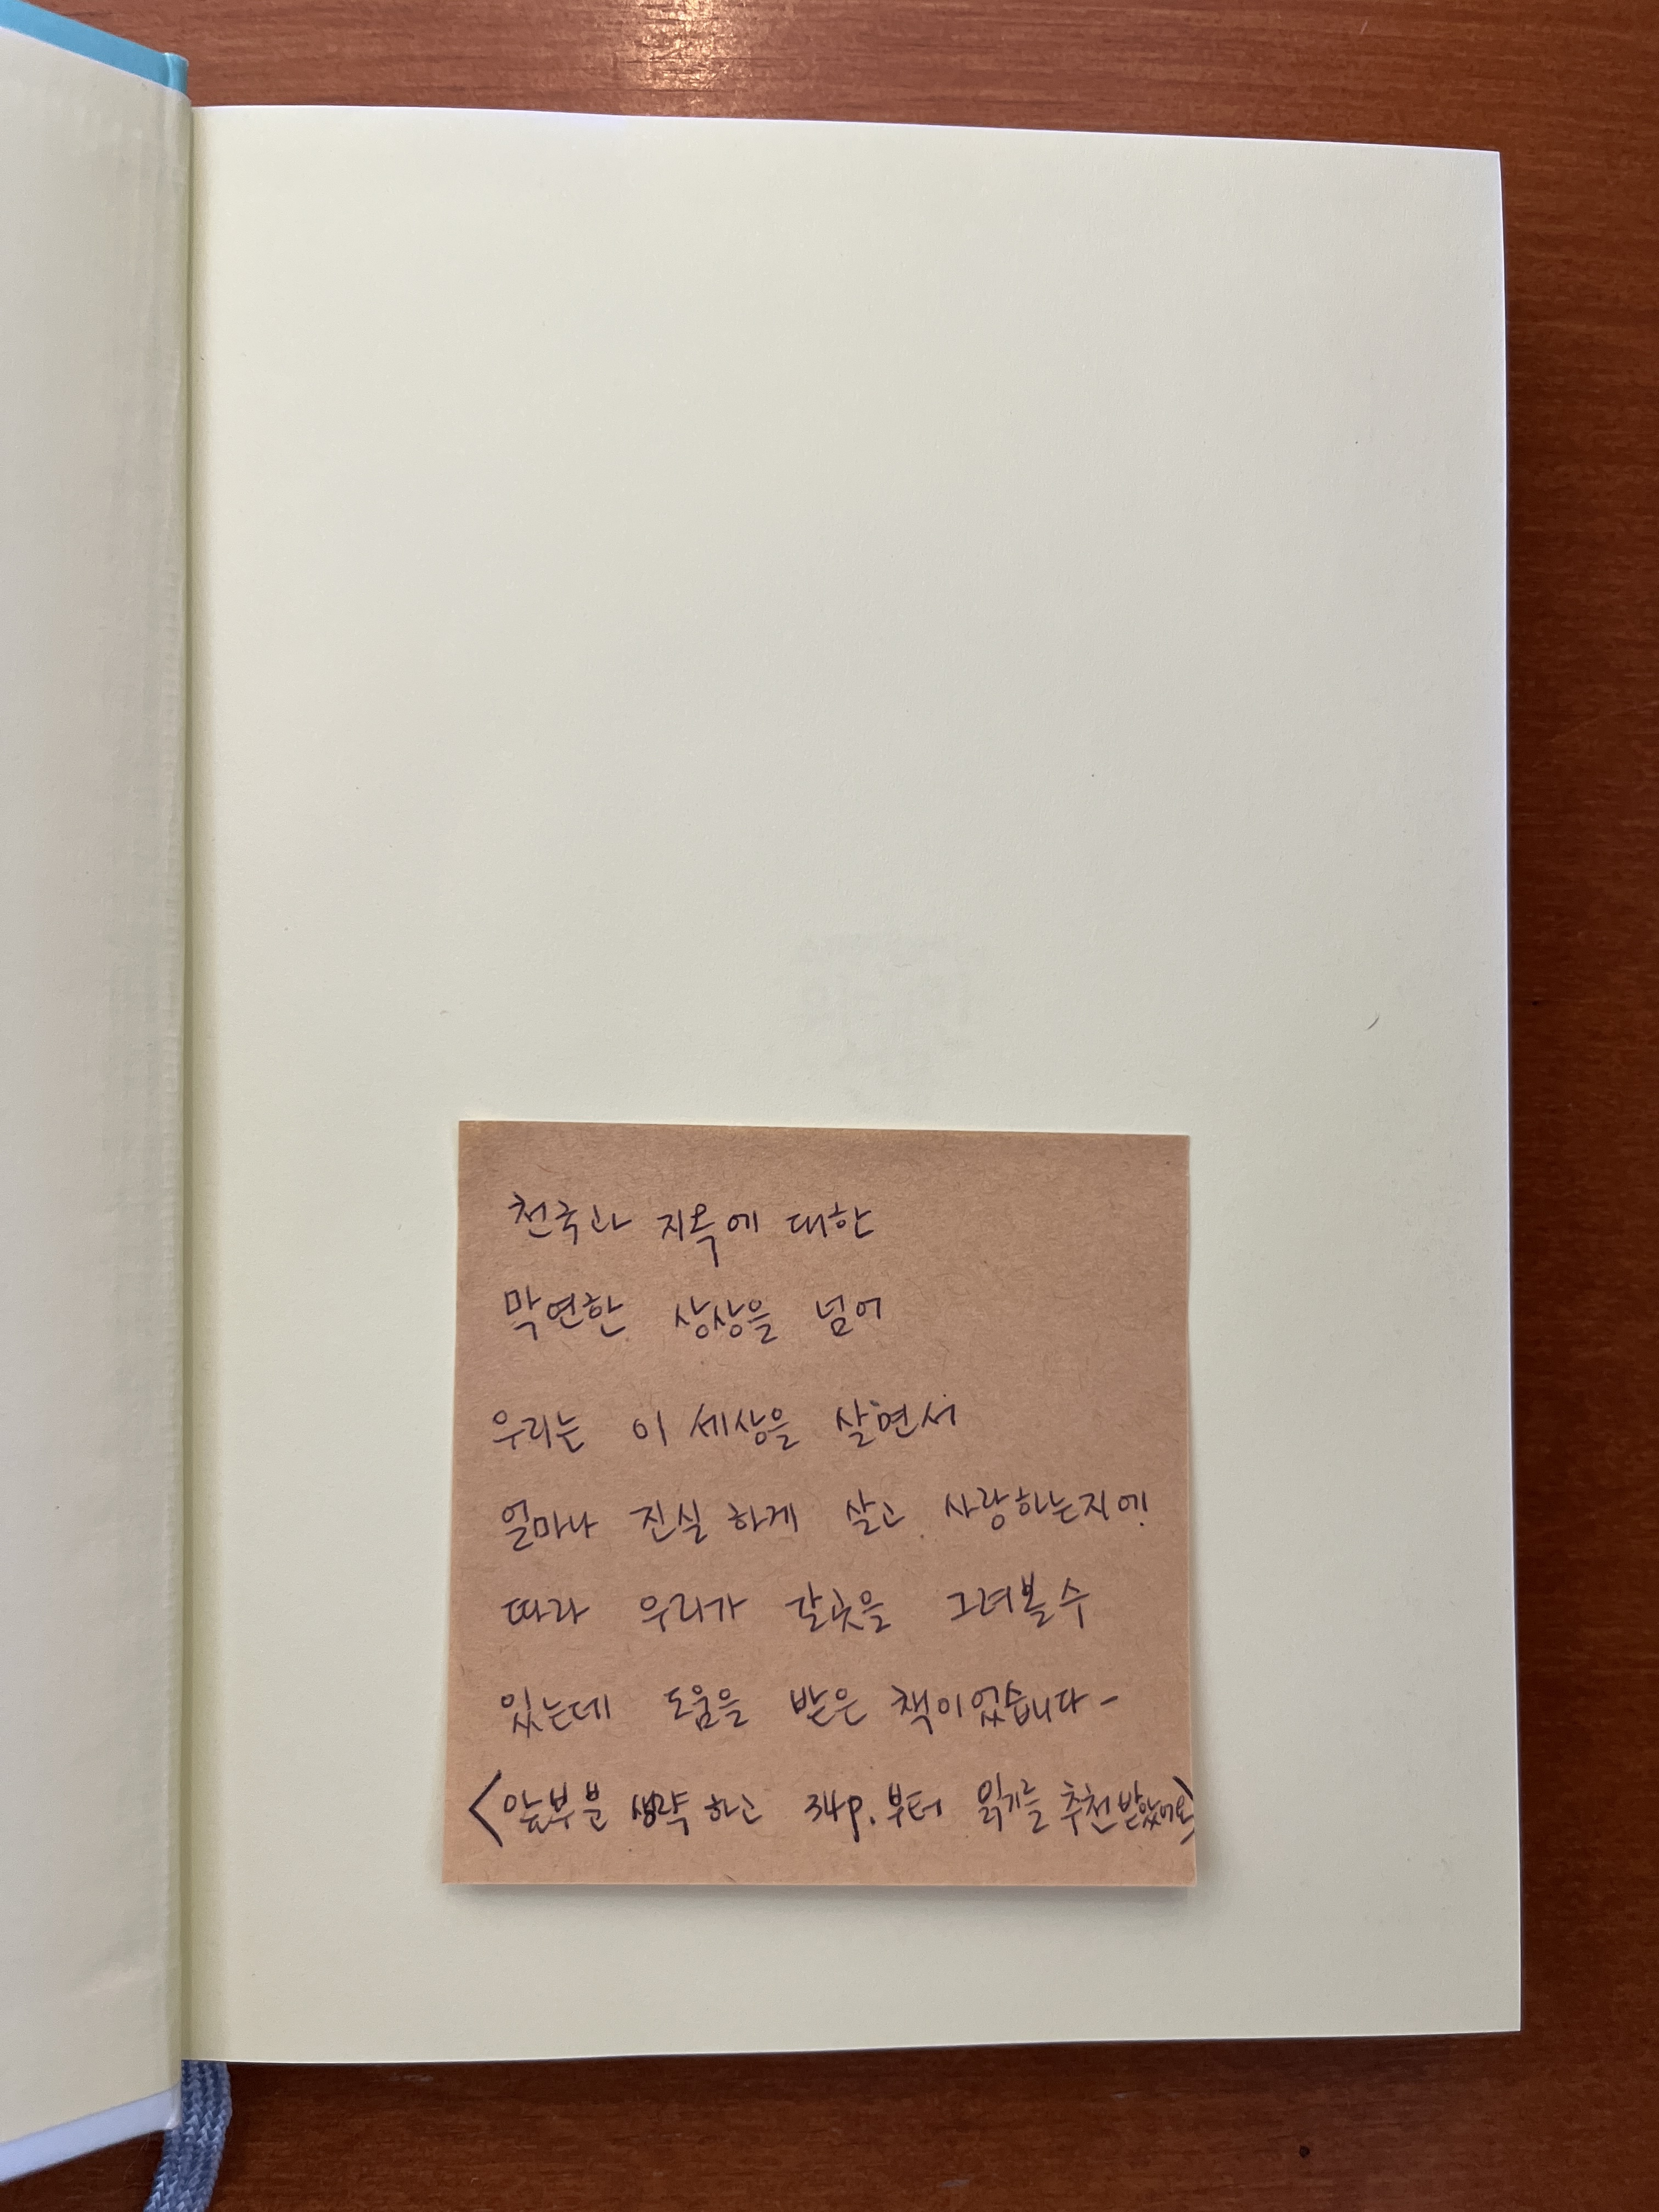 천국과 지옥에 대한
막연한 상상을 넘어
우리는 이 세상을 살면서
얼마나 진실하게 살고 사랑하는지에
따라 우리가 갈곳을 그려볼 수
있는데 도움을 받은 책이었습니다-
<앞부분 생략하고 34p.부터 읽기를 추천받았어요>